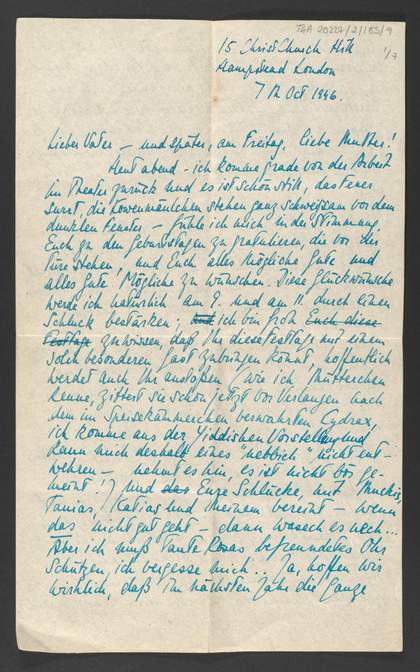 TGA 20227/2/1/83/9
1/2
15 Christchurch Hill
Hampstead London
7th Oct 1946.
Lieber Vater – und später, am Freitag, liebe Mutter!
Heut abend - ich komme grade von der Arbeit
im Theater zurück und es ist schön still, das Feuer
surrt, die Löwenmäulchen stehen ganz schweigsam vor dem
dunklen Fenster – fühle ich mich in der Stimmung,
Euch zu den Geburtstagen zu gratulieren, die vor der
Türe stehen, und Euch alles mögliche Gute und
alles gute Mögliche zu wünschen. Diese Glückwünsche
werde ich natürlich am 9. und am 11. durch einen
Schluck bestärken; und ich bin froh Euch diese
Festtage zu wissen, daß Ihr diese Festtage mit einem
solch besonderen Gast zubringen könnt, hoffentlich
werdet auch Ihr anstoßen (wie ich Mütterchen
kenne, zittert sie schon jetzt vor Verlangen nach
dem im Speisekämmerchen verwahrten Cydrax,
ich komme aus der Jiddischen Vorstellung und
kann mich deshalb eines "nebbich" nicht ent-
wehren – nehmt es hin, es ist nicht bös ge-
meint!) und das Eure Schlücke, mit Muckis,
Tanias, Katias und meinem vereint – wenn
das nicht gut geht – dann
Aber ich muß Tante Rosas befreundetes Ohr
schützen, ich vergesse mich.. Ja, hoffen wir
wirklich, daß im nächsten Jahr die ganze